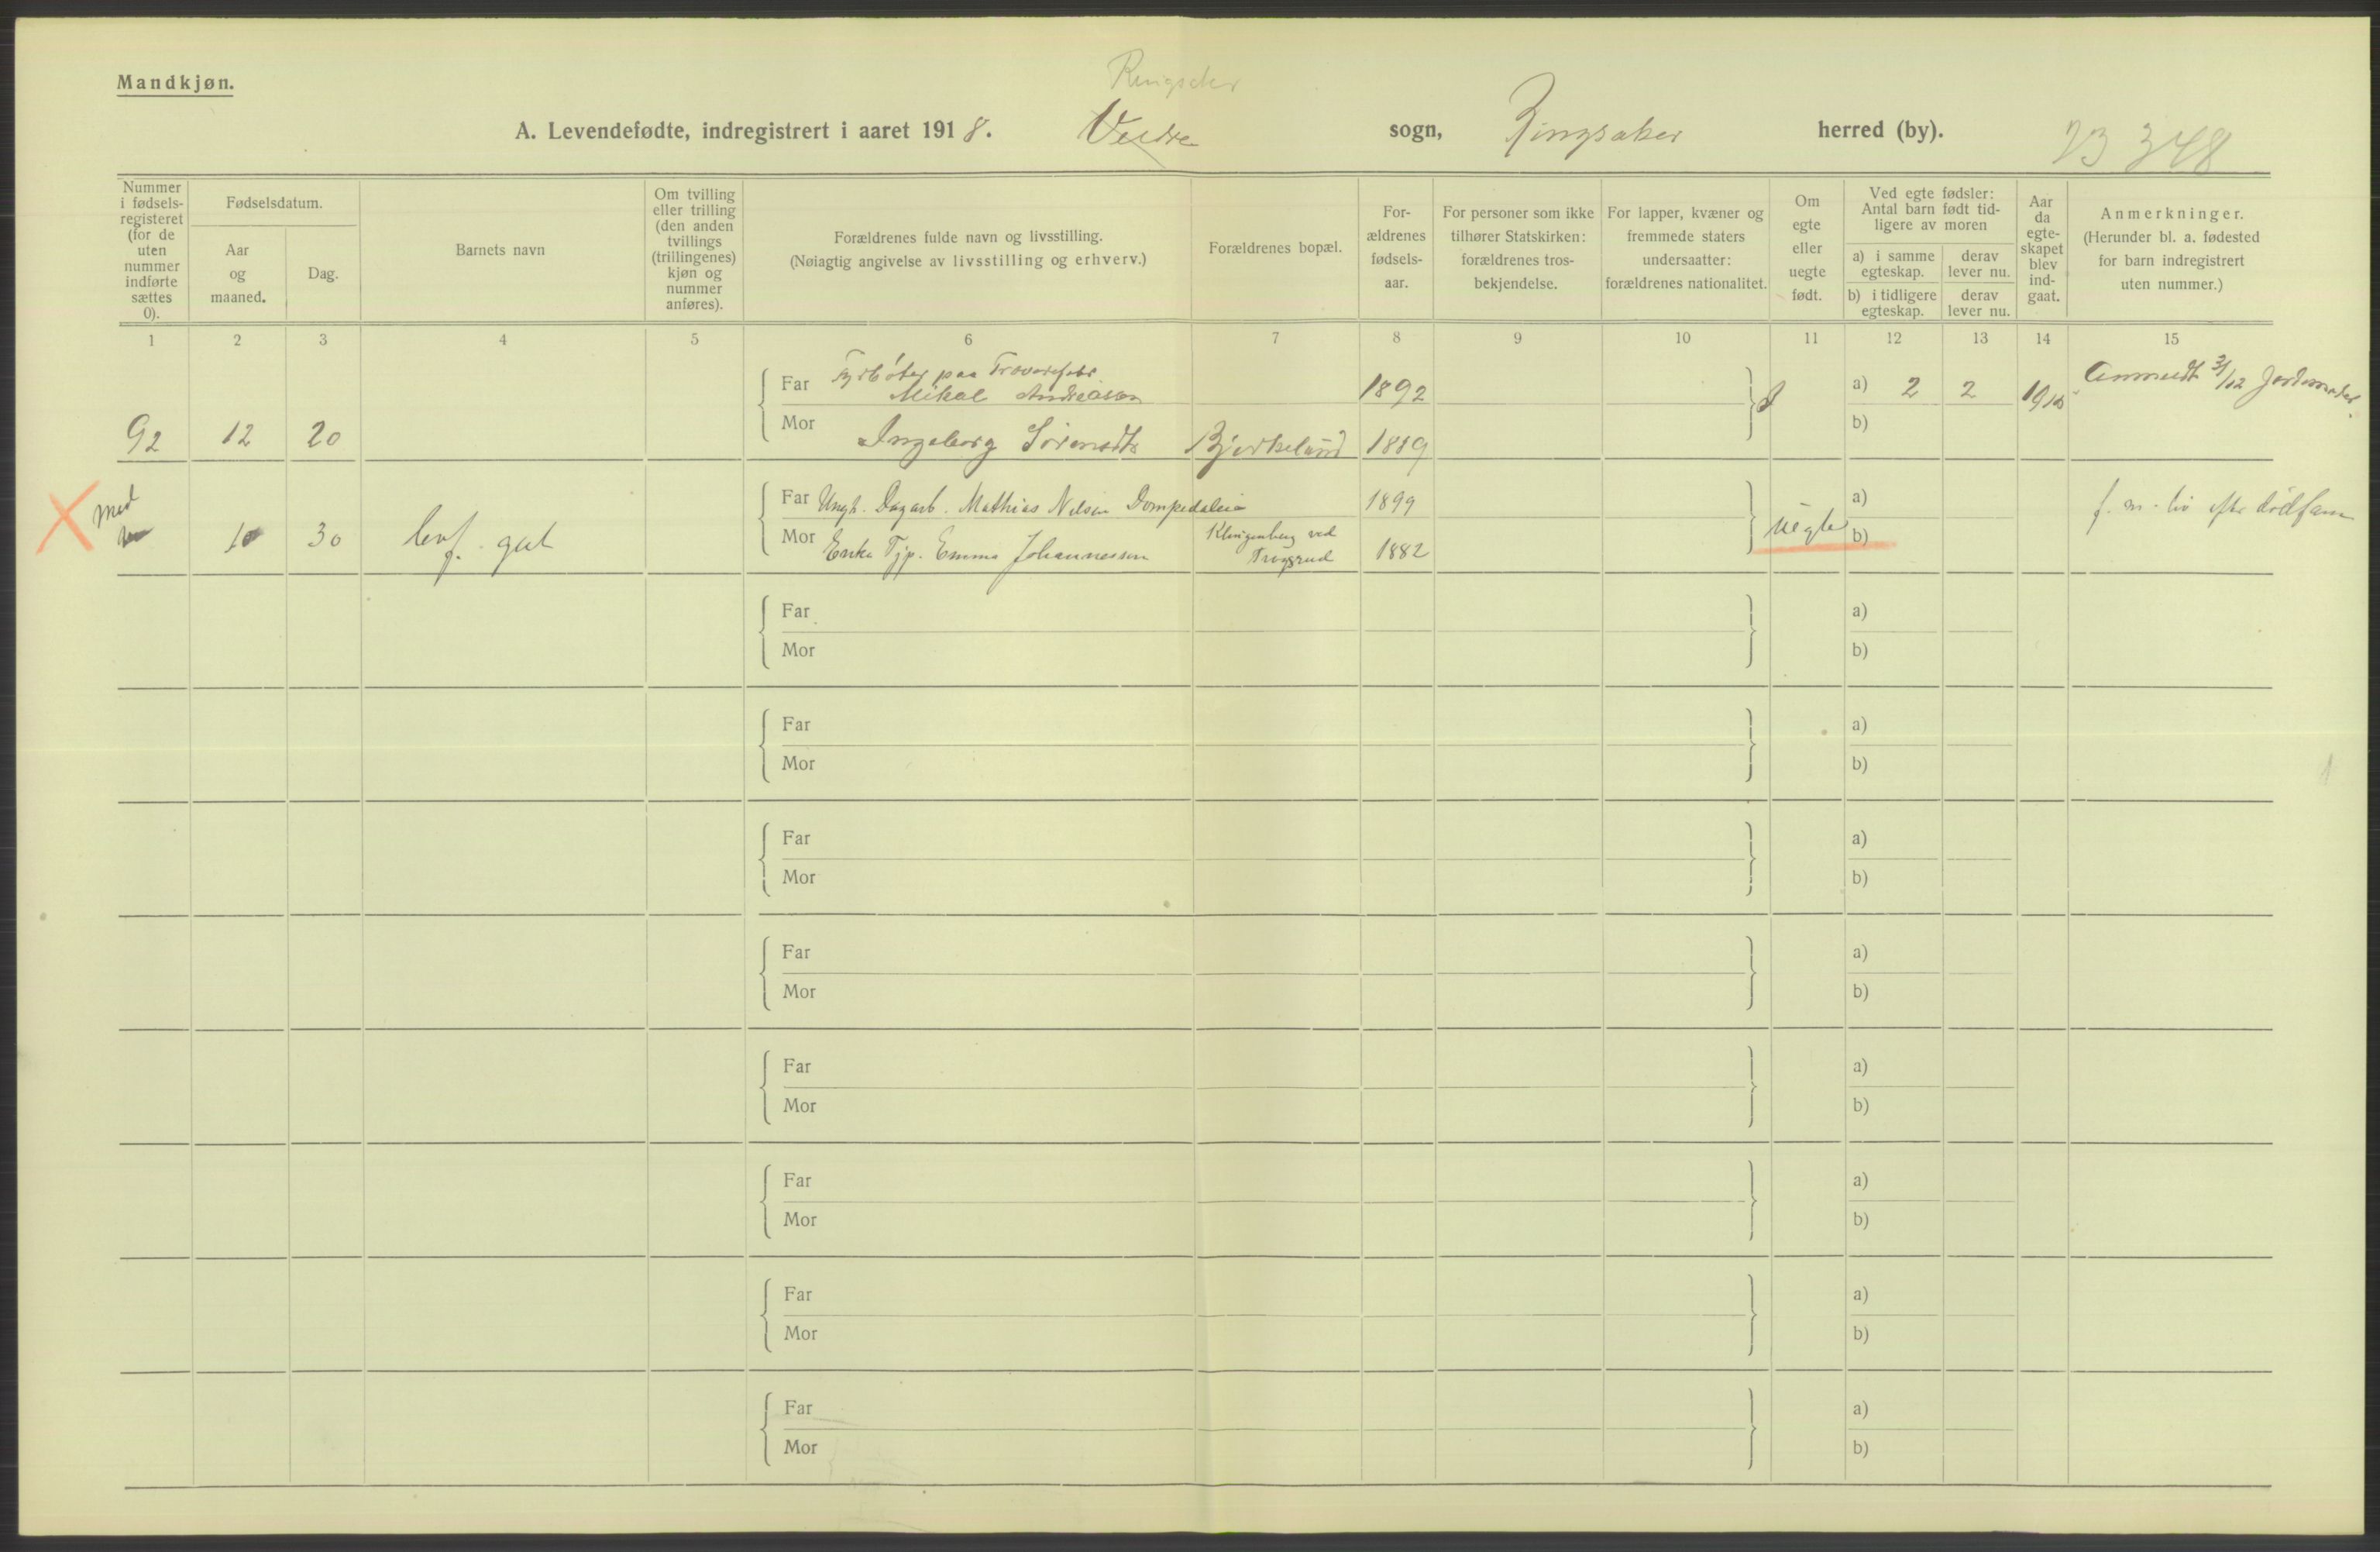 Mandkjøn.
Ringsaker
A. Levendefødte, indregistrert i aaret 1918. Veldre sogn, Ringsaker herred (by). 23 348
Nummer i fødsels-registeret (for de uten nummer indførte sættes 0).
Fødselsdatum.
Aar og maaned.
Dag.
Barnets navn
Om tvilling eller trilling (den anden tvillings (trillingenes) kjøn og nummer anføres).
Forældrenes fulde navn og livsstilling.
(Nøiagtig angivelse av livsstilling og erhverv.)
Forældrenes bopæl.
For-ældrenes fødsels-aar.
For personer som ikke tilhører Statskirken: forældrenes tros-bekjendelse.
For lapper, kvæner og fremmede staters undersaatter: forældrenes nationalitet.
Om egte eller uegte født.
Ved egte fødsler: Antal barn født tid-ligere av moren
a) i samme egteskap.
derav lever nu.
b) i tidligere egteskap.
derav lever nu.
Aar da egte-skapet blev ind-gaat.
Anmerkninger.
(Herunder bl. a. fødested for barn indregistrert uten nummer.)
1 2 3 4 5 6 7 8 9 10 11 12 13 14 15
Fyrbøter paa
Far Mikal Andreassen 1892 a) 2 2 1915 Anmeldt 3/12 Jordmoder
92 12 20 Mor Ingeborg Bjerkelund 1889 b)
med Far Ungk. Dagarb. Mathias Nilsen 1899 a) f. m. liv
10 30 levf. gut Mor Enke Tjp. Emma Johannessen Klingenberg ved 1882 uegte b)
Far a)
Mor b)
Far a)
Mor b)
Far a)
Mor b)
Far a)
Mor b)
Far a)
Mor b)
Far a)
Mor b)
Far a)
Mor b)
Far a)
Mor b)